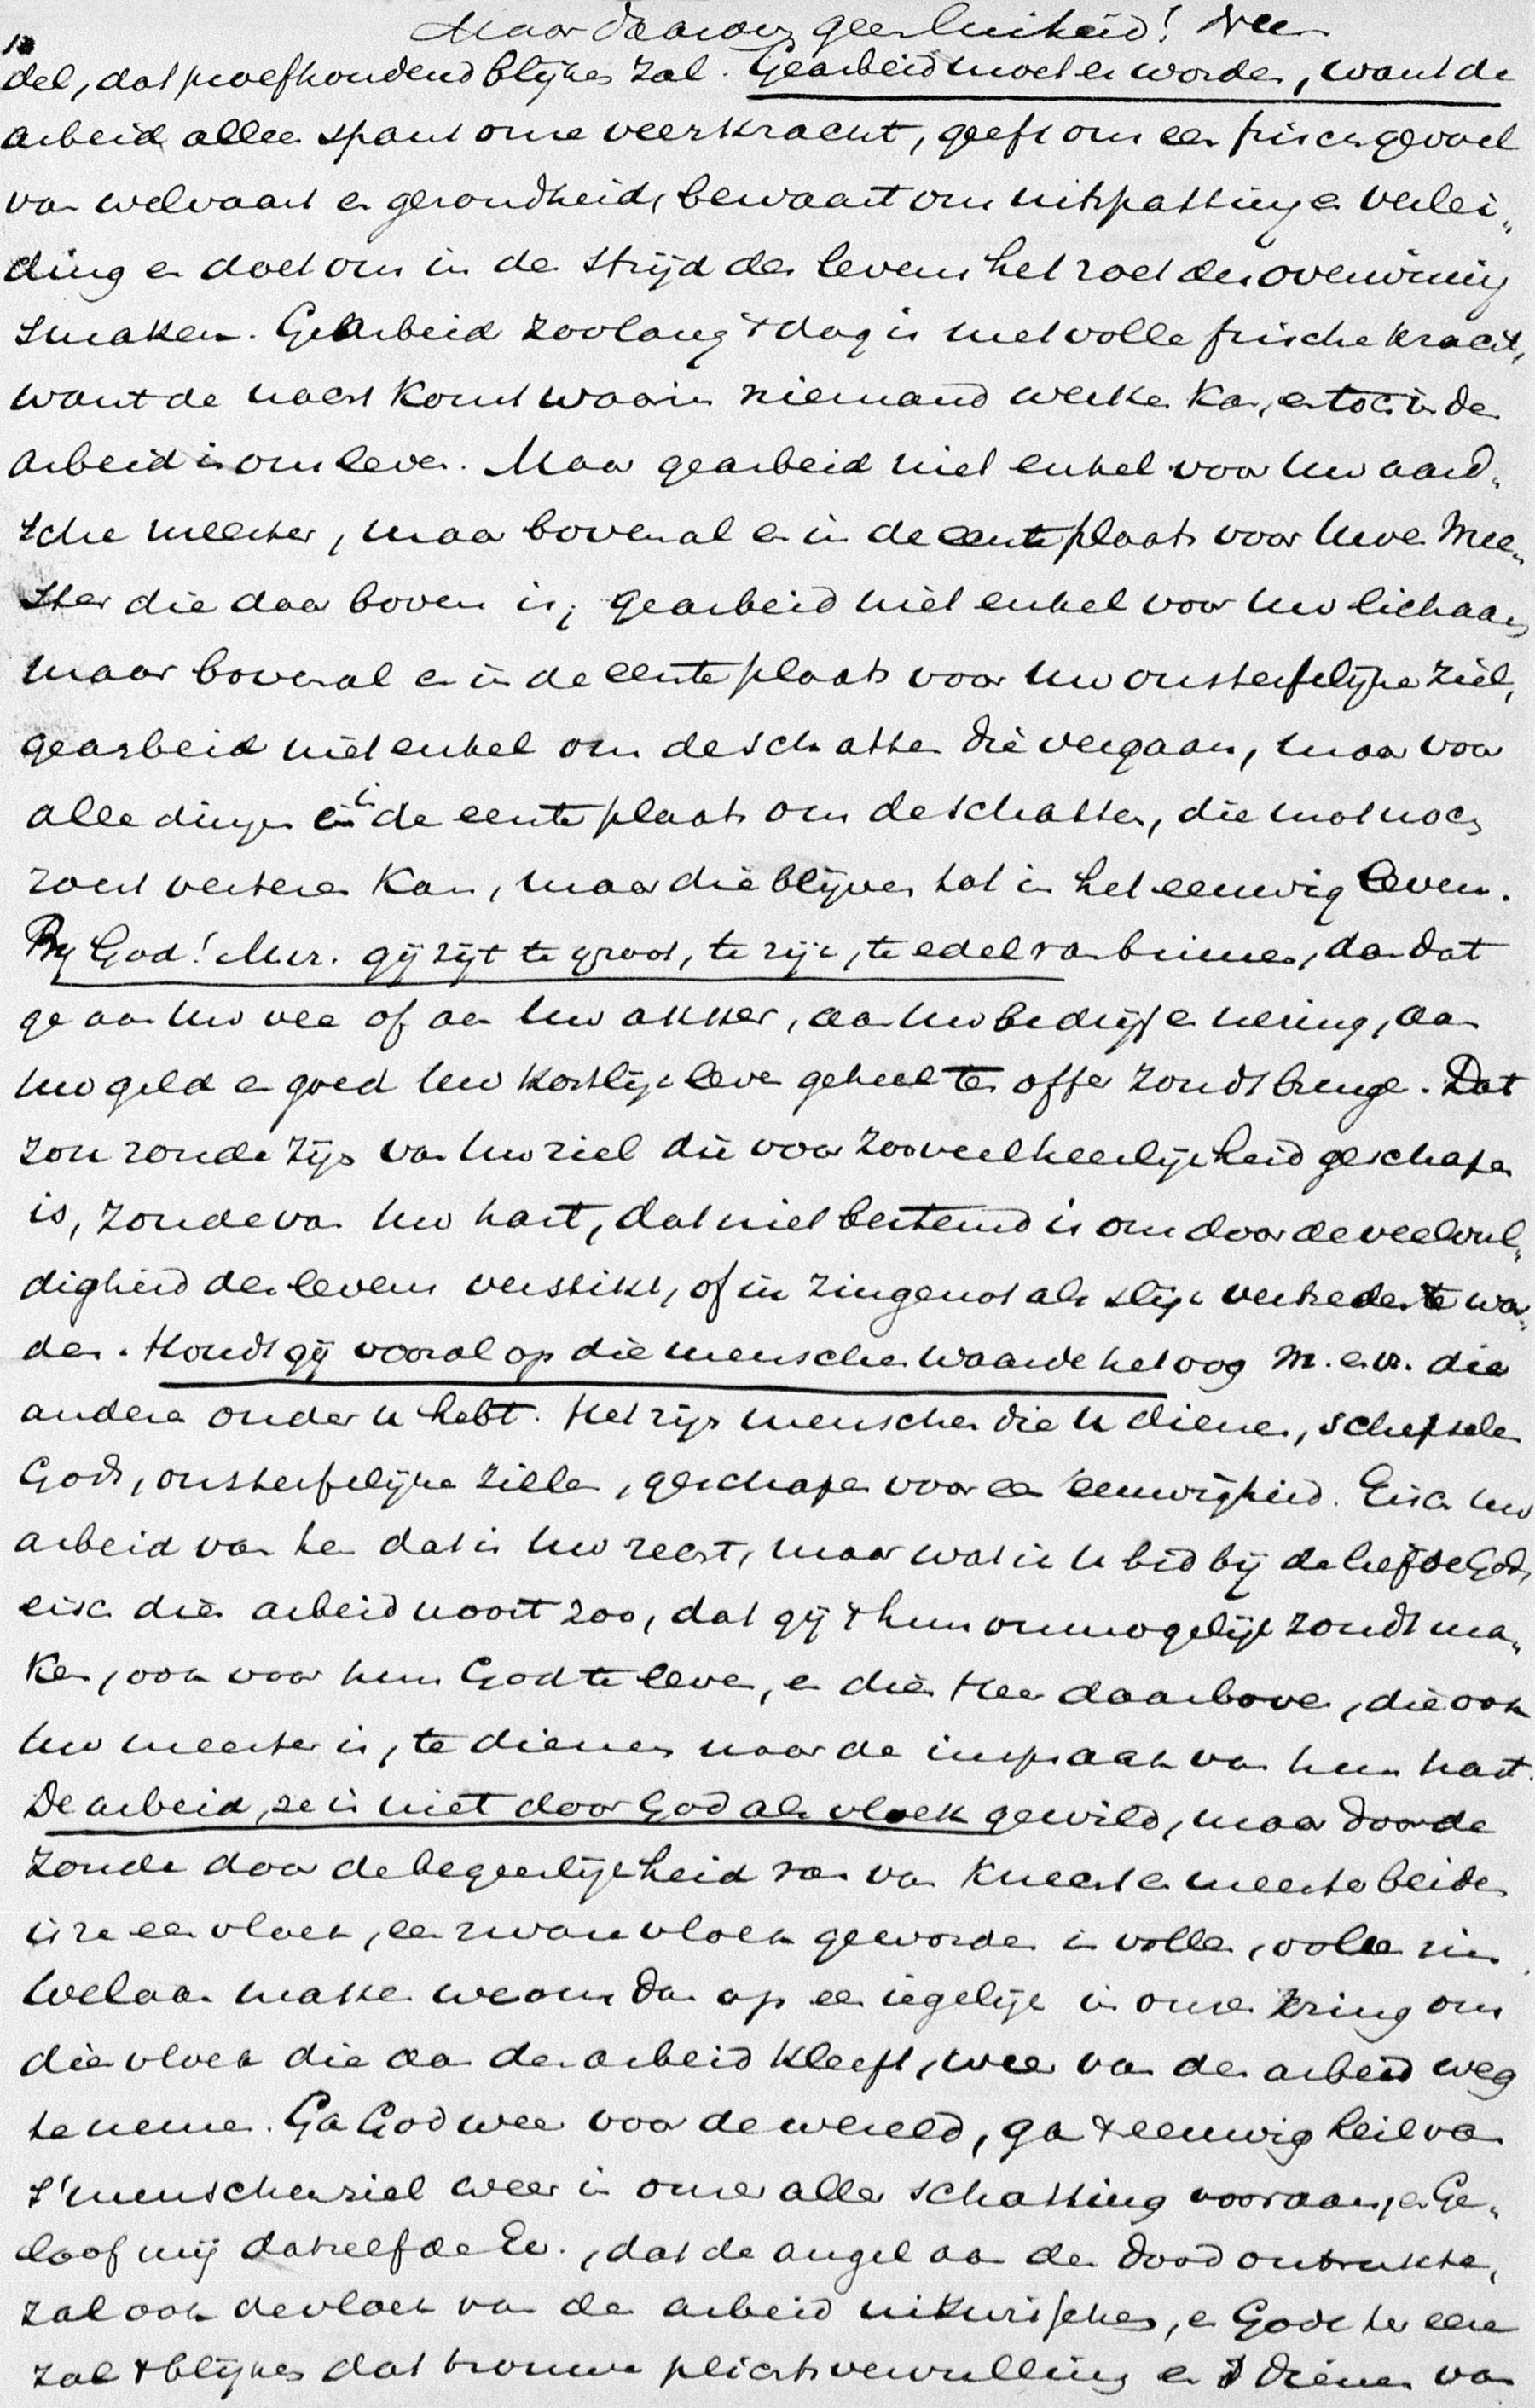 Maar daarom geen luiheid! Nee
10
del, dat proefhoudend blijken zal. Gearbeid moet er worden, want de
arbeid alleen spant onze veerkracht, geeft ons een frisch gevoel
van welvaart en gezondheid, bewaart ons uitspatting en verlei„
ding en doet ons in den strijd des levens het zoet der overwinning
smaken. Gearbeid zoolang 't dag is met volle frissche kracht,
want de nacht komt waarin niemand werken kan, en toch in den
arbeid is ons leven. Maar gearbeid niet enkel voor Uw aard„
schen meester, maar bovenal en in de eerste plaats voor Uwen Mee„
ster die daar boven is, gearbeid niet enkel voor Uw lichaam
maar bovenal en in de eerste plaats voor Uw onsterfelijke ziel,
gearbeid niet enkel om de schatten die vergaan, maar voor
alle dingen in de eerste plaats om de schatten, die mot noch
roest verteren kan, maar die blijven tot in het eeuwig leven.
By God! M.vr. gij zijt te groot, te rijk, te edel van binnen, dan dat
ge aan Uw vee of aan Uw akker, aan Uw bedrijf en nering, aan
Uw geld en goed Uw kostlijk leven geheel ten offer zoudt brengen. Dat
zou zonde zijn van Uw ziel die voor zooveel heerlijkheid geschapen
is, zonde van Uw hart, dat niet bestemd is om door de veelvul„
digheid des levens verstikt, of in zingenot als slijk vertreden te wor„
den. Houdt gij vooral op die menschenwaarde het oog M.e.vr. die
anderen onder U hebt. Het zijn menschen die U dienen, schepselen
Gods, onsterfelijke zielen, geschapen voor een eeuwigheid. Eisch Uw
arbeid van hen dat is Uw recht, maar wat ik U bid bij de liefde Gods,
eisch dien arbeid nooit zoo, dat gij 't hun onmogelijk zoudt ma„
ken, ook voor hun God te leven, en dien Heer daarboven, die ook
Uw meester is, te dienen naar de inspraak van hun hart.
De arbeid, ze is niet door God als vloek gewild, maar door de
zonde door de begeerlijkheid van van knecht en meester beiden
is ze een vloek, een zware vloek geworden in vollen, vollen zin
Welaan maken we ons dan op een iegelijk in onzen kring om
dien vloek die aan den arbeid kleeft, weer van den arbeid weg
te nemen. Ga God weer voor de wereld, ga 't eeuwig heil van
s'menschenziel weer in onze aller schatting vooraan, en Ge„
loof mij datzelfde Ev., dat de angel aan den dood ontrukte,
zal ook den vloek van den arbeid uitwisschen, en Gode ter eere
zal 't blijken dat trouwe plichtsvervulling en 't dienen van